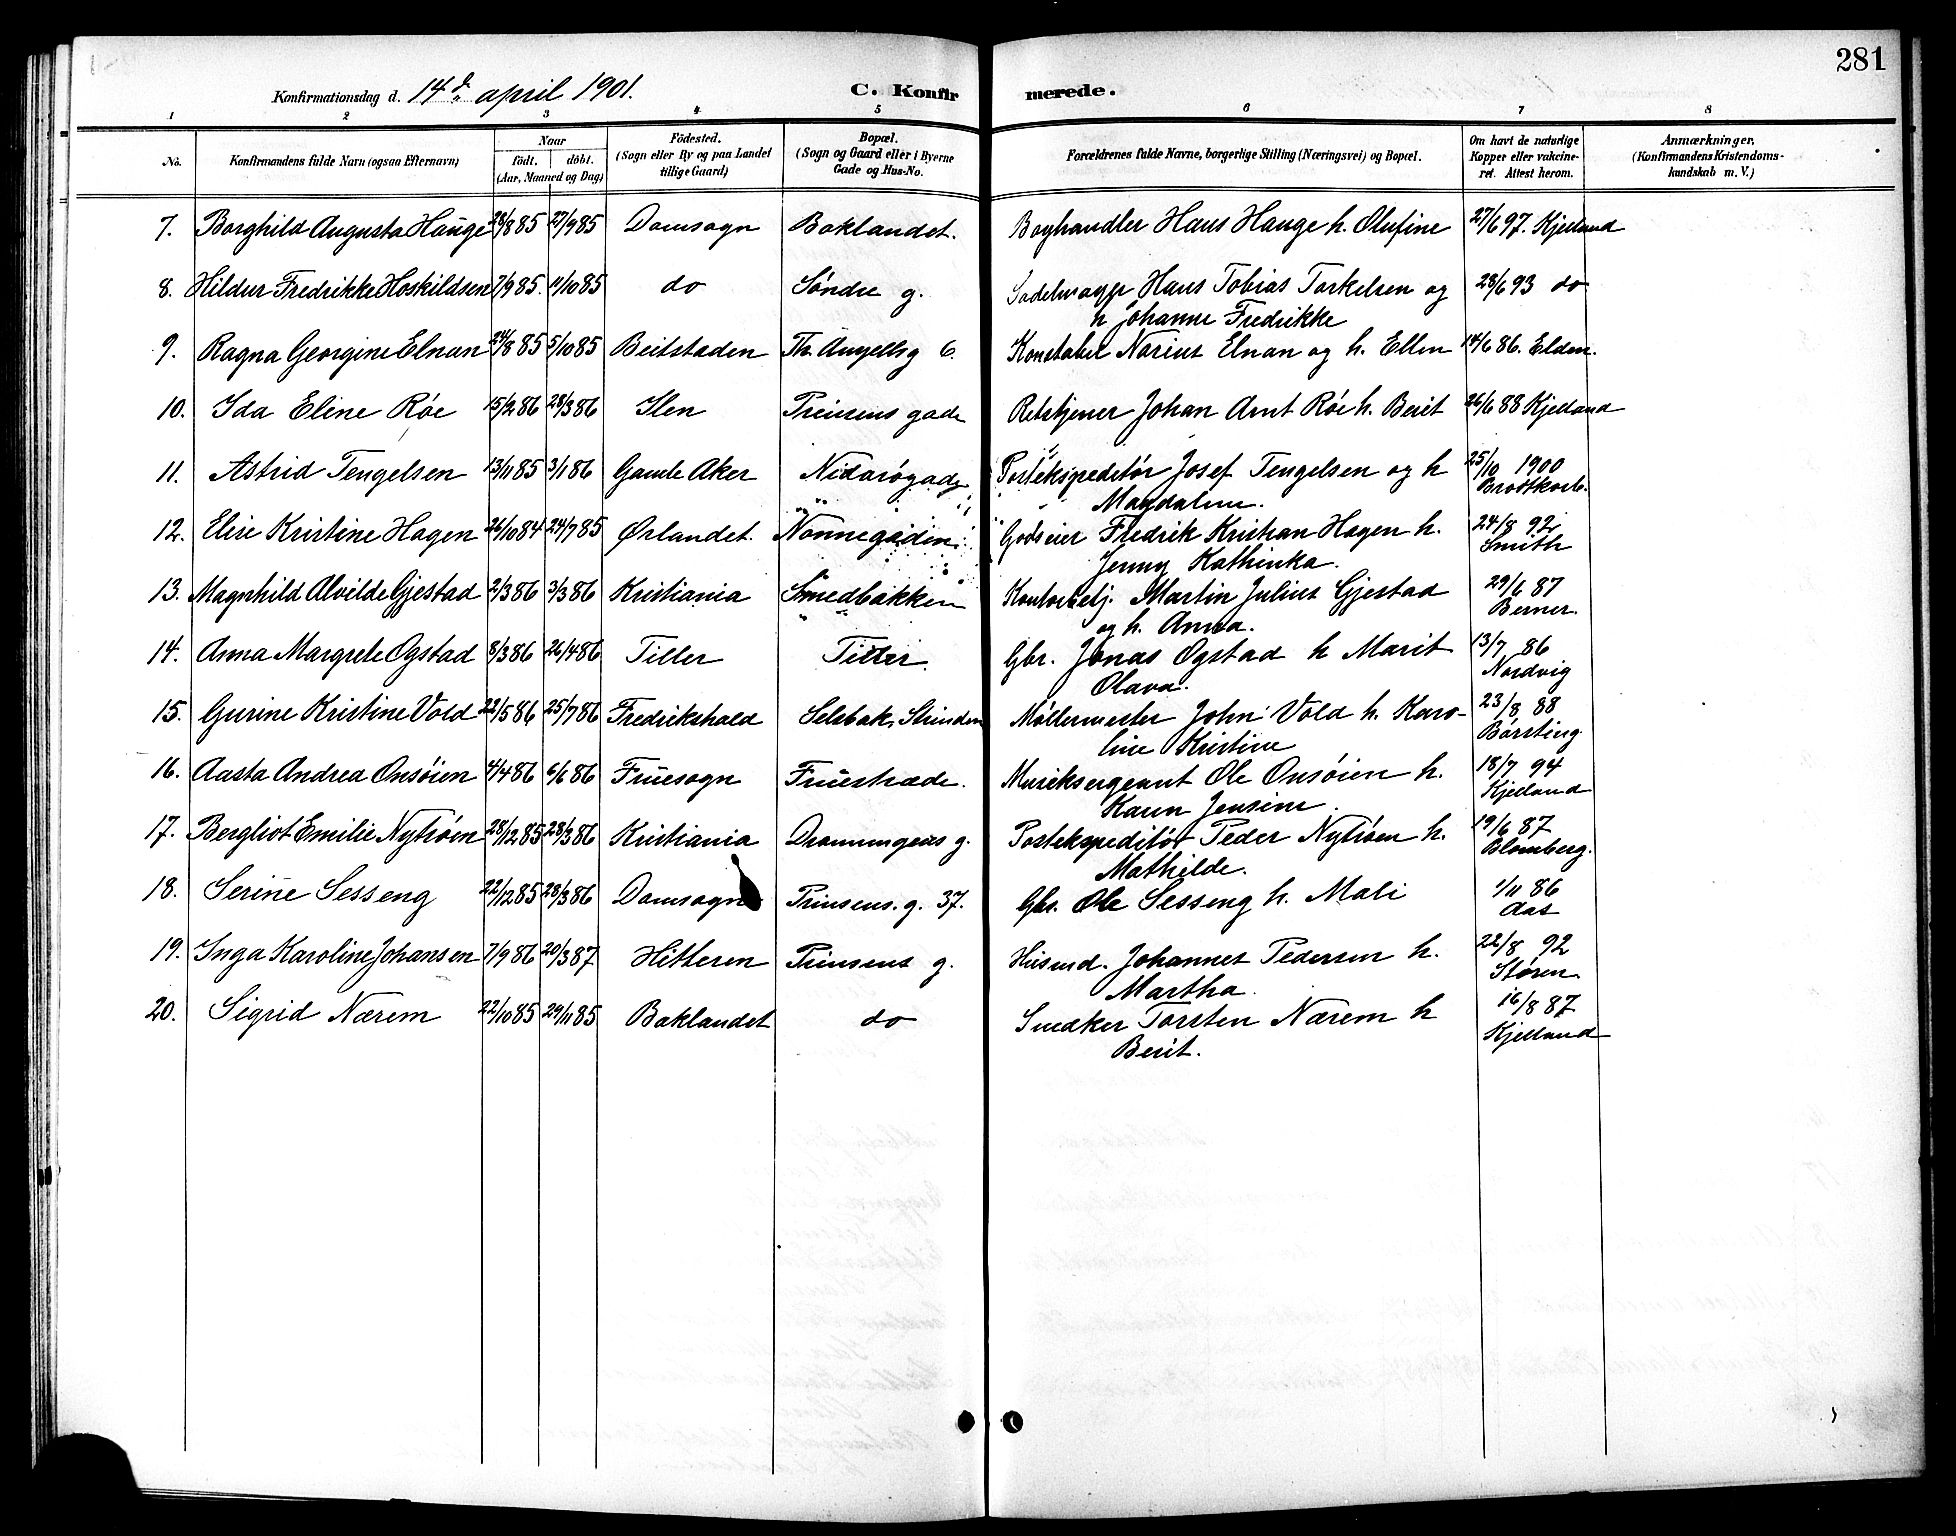 281
Konfirmationsdag d. 14de april 1901.
C. Konfirmerede.
1 2 3 4 5 6 7 8
No. Konfirmandens fulde Navn (ogsaa Efternavn) Naar født. døbt. (Aar, Maaned og Dag) Födested. (Sogn eller By og paa Landet tillige Gaard) Bopæl. (Sogn og Gaard eller i Byerne Gade og Hus-No. Forældrenes fulde Navne, borgerlige Stilling (Næringsvei) og Bopæl. Om havt de naturlige Kopper eller vakcineret. Attest herom. Anmærkninger. (Konfirmandens Kristendomskundskab m. V.)
7. Borghild Augusta Hauge 28/8 85 27/9 85 Domsogn Baklandet. Boghandler Hans Hauge h. Olufine 27/6 97. Kjelland
8. Hildur Fredrikke Hoskildsen 7/9 85. 11/10 85 do Søndre g. Sadelmager Hans Tobias Torkelsen og 28/6 93 do
h Johanne Fredrikke
9. Ragna Georgine Elnan 24/8 85 5/10 85 Beitstaden Th. Angellsg 6. Konstabel Narius Elnan og h. Ellen 14/6 86. Elden.
10. Ida Eline Røe 15/2 86 28/3 86 Ilen Prinsens gade Retstjener Johan Arnt Røe h. Berit 26/6 88 Kjelland
11. Astrid Tengelsen 13/11 85 3/1 86 Gamle Aker Nidarøgade Postekspeditør Josef Tengelsen og h 25/10 1900
Magdalene. Brodtkorb.
12. Elise Kristine Hagen 26/10 84 24/7 85 Ørlandet. Nonnegaden Godseier Fredrik Kristian Hagen h. 24/8 92
Jenny Kathinka. Smith
13. Magnhild Alvilde Gjestad 2/3 86 3/3 86 Kristiania Smedbakken Kontorbetj. Martin Julius Gjestad 29/6 87
og h. Anna. Berner.
14. Anna Margrete Ogstad 8/3 86 26/4 86 Tiller Tiller. Gbr. Jonas Ogstad h Marit 13/7 86
Olava. Nordvig
15. Gurine Kristine Vold 22/5 86 25/7 86 Fredrikshald Selsbak, Strinden Møllermester John Vold h. Karo- 23/8 88
line Kristine Børsting
16. Aasta Andrea Onsøien 4/4 86 6/6 86 Fruesogn Fruestræde. Musiksergeant Ole Onsøien h. 18/7 94
Karen Jensine. Kjelland
17. Bergliot Emilie Nytrøen 28/12 85 28/3 86 Kristiania Dronningens g. Postekspeditør Peder Nytrøen h. 19/6 87
Mathilde. Blomberg.
18. Serine Sesseng 22/12 85 28/3 86 Domsogn Prinsens. g. 37. Gbr. Ole Sesseng h. Mali 1/11 86
Aas
19. Inga Karoline Johansen 7/9 86 20/3 87 Hitteren Prinsens g. Husmd. Johannes Pedersen h. 22/8 92
Martha. Støren.
20. Sigrid Nærem 22/10 85 29/11 85 Baklandet do Snedker Torsten Nærem h 16/8 87
Berit. Kjelland